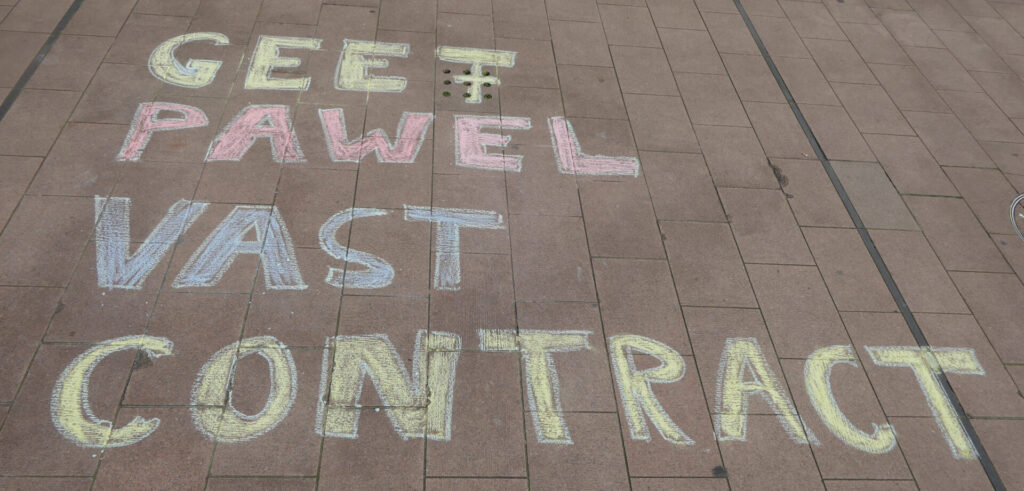 GEEF
PAWEL
VAST
CONTRACT